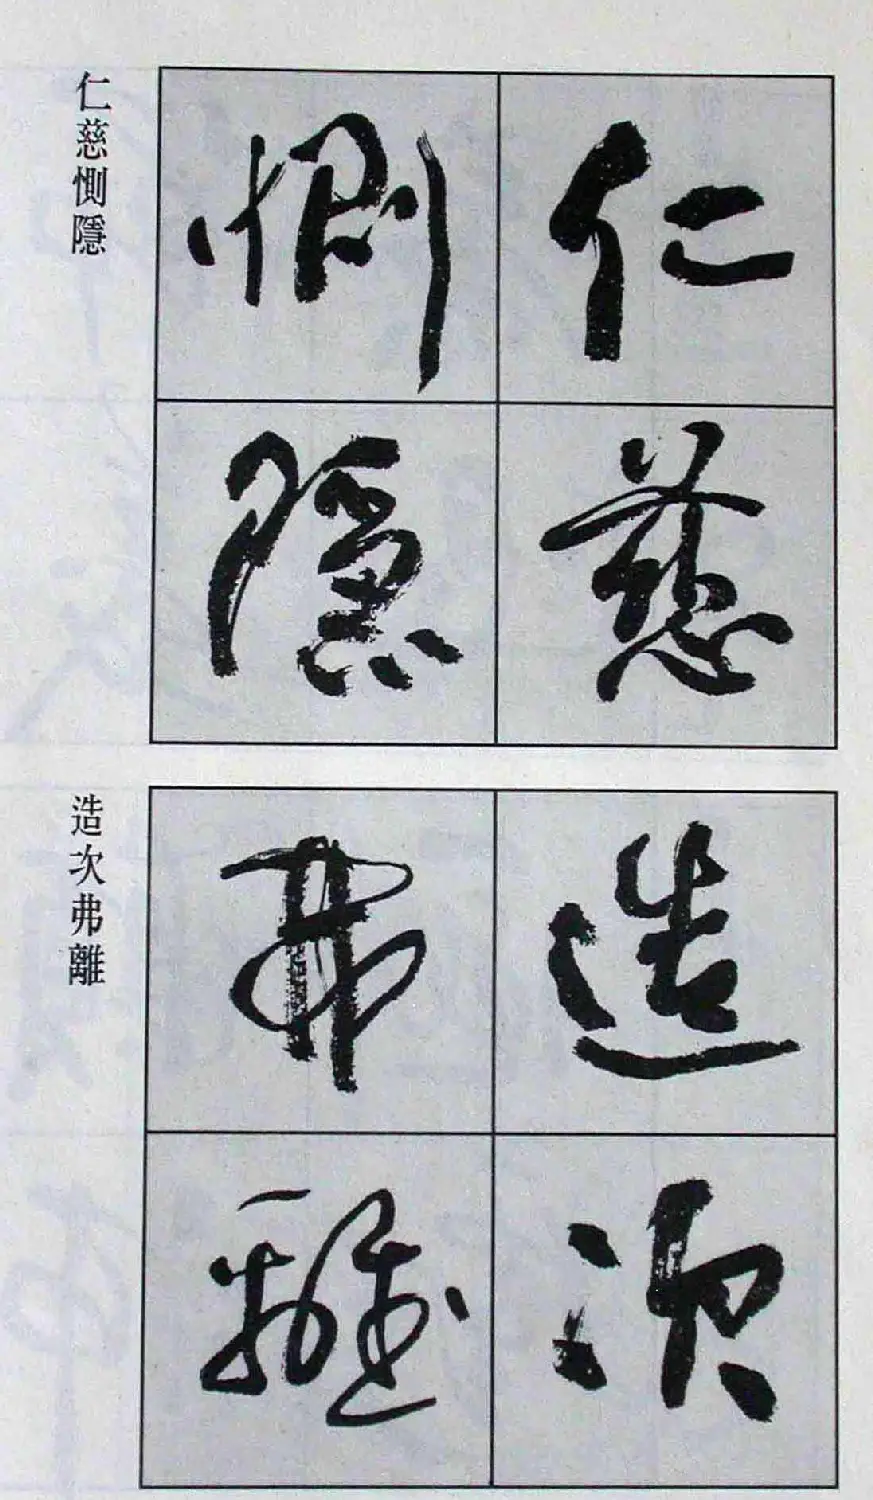 仁慈
惻隱
仁慈惻隱
造次
弗離
造次弗離